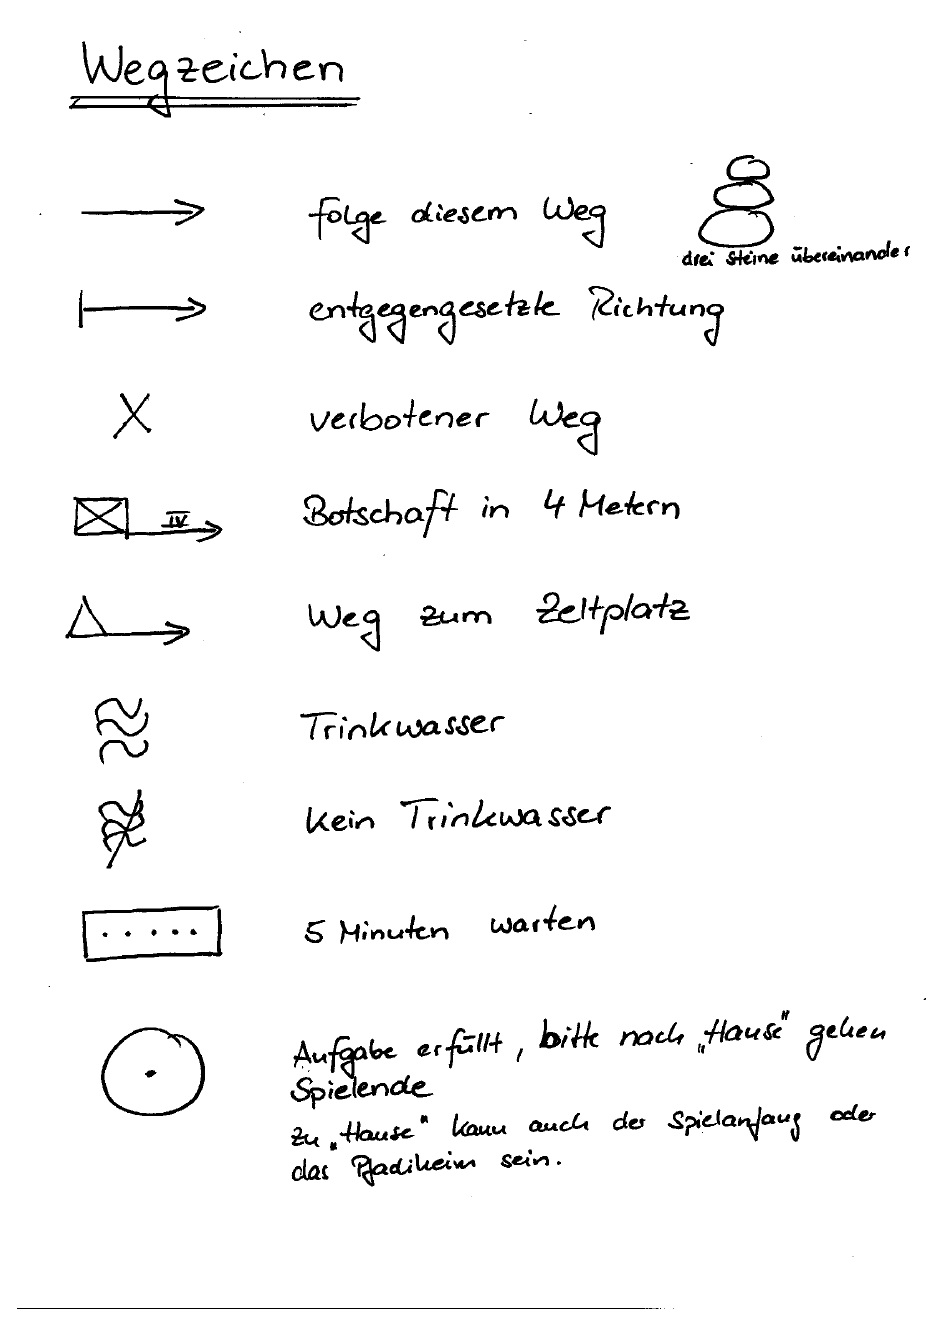 Wegzeichen
folge diesem Weg
drei Steine übereinander
entgegengesetzte Richtung
X
verbotener Weg
IV
Botschaft in 4 Metern
Weg zum Zeltplatz
Trinkwasser
kein Trinkwasser
5 Minuten warten
Aufgabe erfüllt, bitte nach „Hause" gehen
Spielende
zu „Hause" kann auch der Spielanfang oder
das Pfadiheim sein.